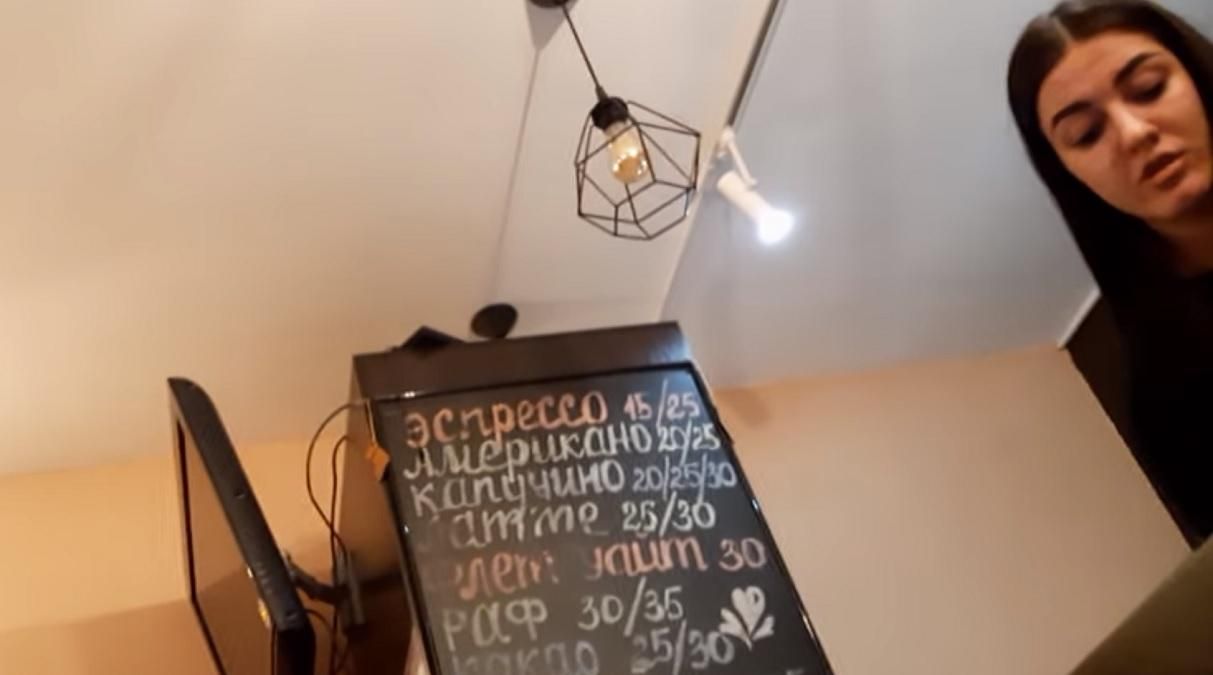 эспрессо 15/25
Американо 20/25
капучино 20/25/30
латте 25/30
флет уайт 30
раф 30/35
какао 25/30